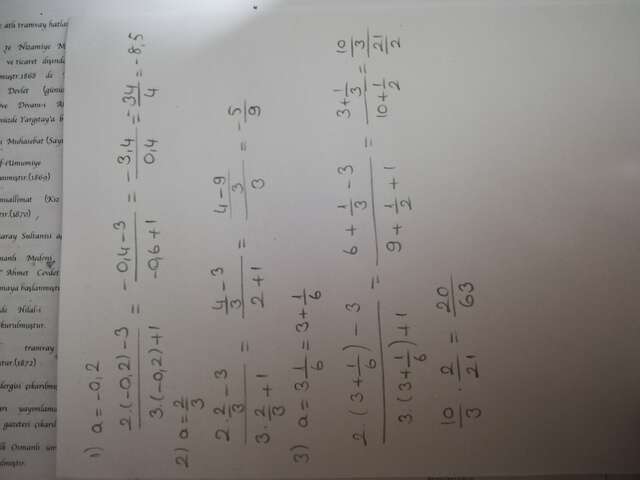 1) a = -0,2
2.(-0,2)-3 / 3.(-0,2)+1 = -0,4-3 / -0,6+1 = -3,4 / 0,4 = -34 / 4 = -8,5
2) a = 2/3
2.2/3 - 3 / 3.2/3 + 1 = 4/3 - 3 / 2+1 = 4-9/3 / 3 = -5/9
3) a = 3 1/6 = 3 + 1/6
2.(3+1/6) - 3 / 3.(3+1/6)+1 = 6 + 1/3 - 3 / 9 + 1/2 + 1 = 3+1/3 / 10+1/2 = 10/3 / 21/2
10/3 . 2/21 = 20/63
atlı tramvay hatla
Nizamiye M
ve ticaret dışında
muştr.1868 de
Devlet (günü
ve Divanı-ı A
müzde Yargıtay'a b
ı Muhasebat (Say
f-ı Umumiye
anmıştır.(1869)
uallimat (Kız
tır.(1870)
aray Sultanisi a
manlı Medeni
Ahmet Cevdet
maya başlanmıştı
di Hilal-i
kurulmuştur.
tramvay
tur.(1872)
dergisi çıkarılmış
arı yayımlama
gazeteri çıkarıl
ilk Osmanlı
lmıştır.